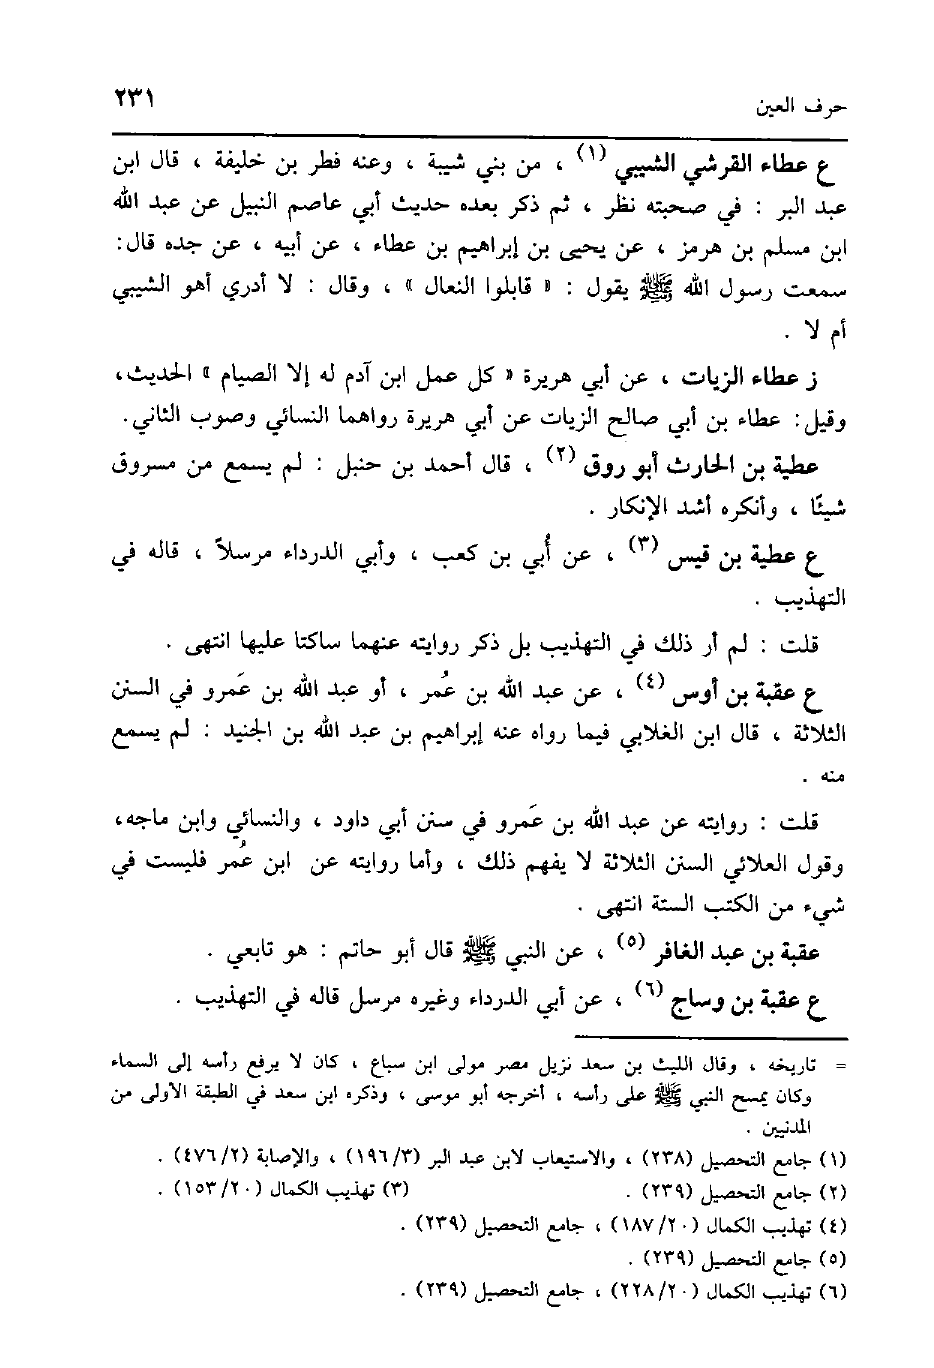 حرف العين
٢٣١
ع عطاء القرشي الشيبي (١) ، من بني شيبة ، وعنه فطر بن خليفة ، قال ابن
عبد البر : في صحبته نظر ، ثم ذكر بعده حديث أبي عاصم النبيل عن عبد الله
ابن مسلم بن هرمز ، عن يحيى بن إبراهيم بن عطاء ، عن أبيه ، عن جده قال:
سمعت رسول الله ﷺ يقول : « قابلوا النعال » ، وقال : لا أدري أهو الشيبي
أم لا .
ز عطاء الزيات ، عن أبي هريرة « كل عمل ابن آدم له إلا الصيام » الحديث،
وقيل: عطاء بن أبي صالح الزيات عن أبي هريرة رواهما النسائي وصوب الثاني.
عطية بن الحارث أبو روق (٢) ، قال أحمد بن حنبل : لم يسمع من مسروق
شيئًا ، وأنكره أشد الإنكار .
ع عطية بن قيس (٣) ، عن أُبي بن كعب ، وأبي الدرداء مرسلاً ، قاله في
التهذيب .
قلت : لم أر ذلك في التهذيب بل ذكر روايته عنهما ساكتا عليها انتهى .
ع عقبة بن أوس (٤) ، عن عبد الله بن عُمر ، أو عبد الله بن عَمرو في السنن
الثلاثة ، قال ابن الغلابي فيما رواه عنه إبراهيم بن عبد الله بن الجنيد : لم يسمع
منه .
قلت : روايته عن عبد الله بن عَمرو في سنن أبي داود ، والنسائي وابن ماجه،
وقول العلائي السنن الثلاثة لا يفهم ذلك ، وأما روايته عن ابن عُمر فليست في
شيء من الكتب الستة انتهى .
عقبة بن عبد الغافر (٥) ، عن النبي ﷺ قال أبو حاتم : هو تابعي .
ع عقبة بن وساج (٦) ، عن أبي الدرداء وغيره مرسل قاله في التهذيب .
= تاريخه ، وقال الليث بن سعد نزيل مصر مولى ابن سباع ، كان لا يرفع رأسه إلى السماء
وكان يمسح النبي ﷺ على رأسه ، أخرجه أبو موسى ، وذكره ابن سعد في الطبقة الأولى من
المدنيين .
(١) جامع التحصيل (٢٣٨) ، والاستيعاب لابن عبد البر (١٩٦/٣) ، والإصابة (٤٧٦/٢) .
(٢) جامع التحصيل (٢٣٩) . (٣) تهذيب الكمال (١٥٣/٢٠) .
(٤) تهذيب الكمال (١٨٧/٢٠) ، جامع التحصيل (٢٣٩) .
(٥) جامع التحصيل (٢٣٩) .
(٦) تهذيب الكمال (٢٢٨/٢٠) ، جامع التحصيل (٢٣٩) .